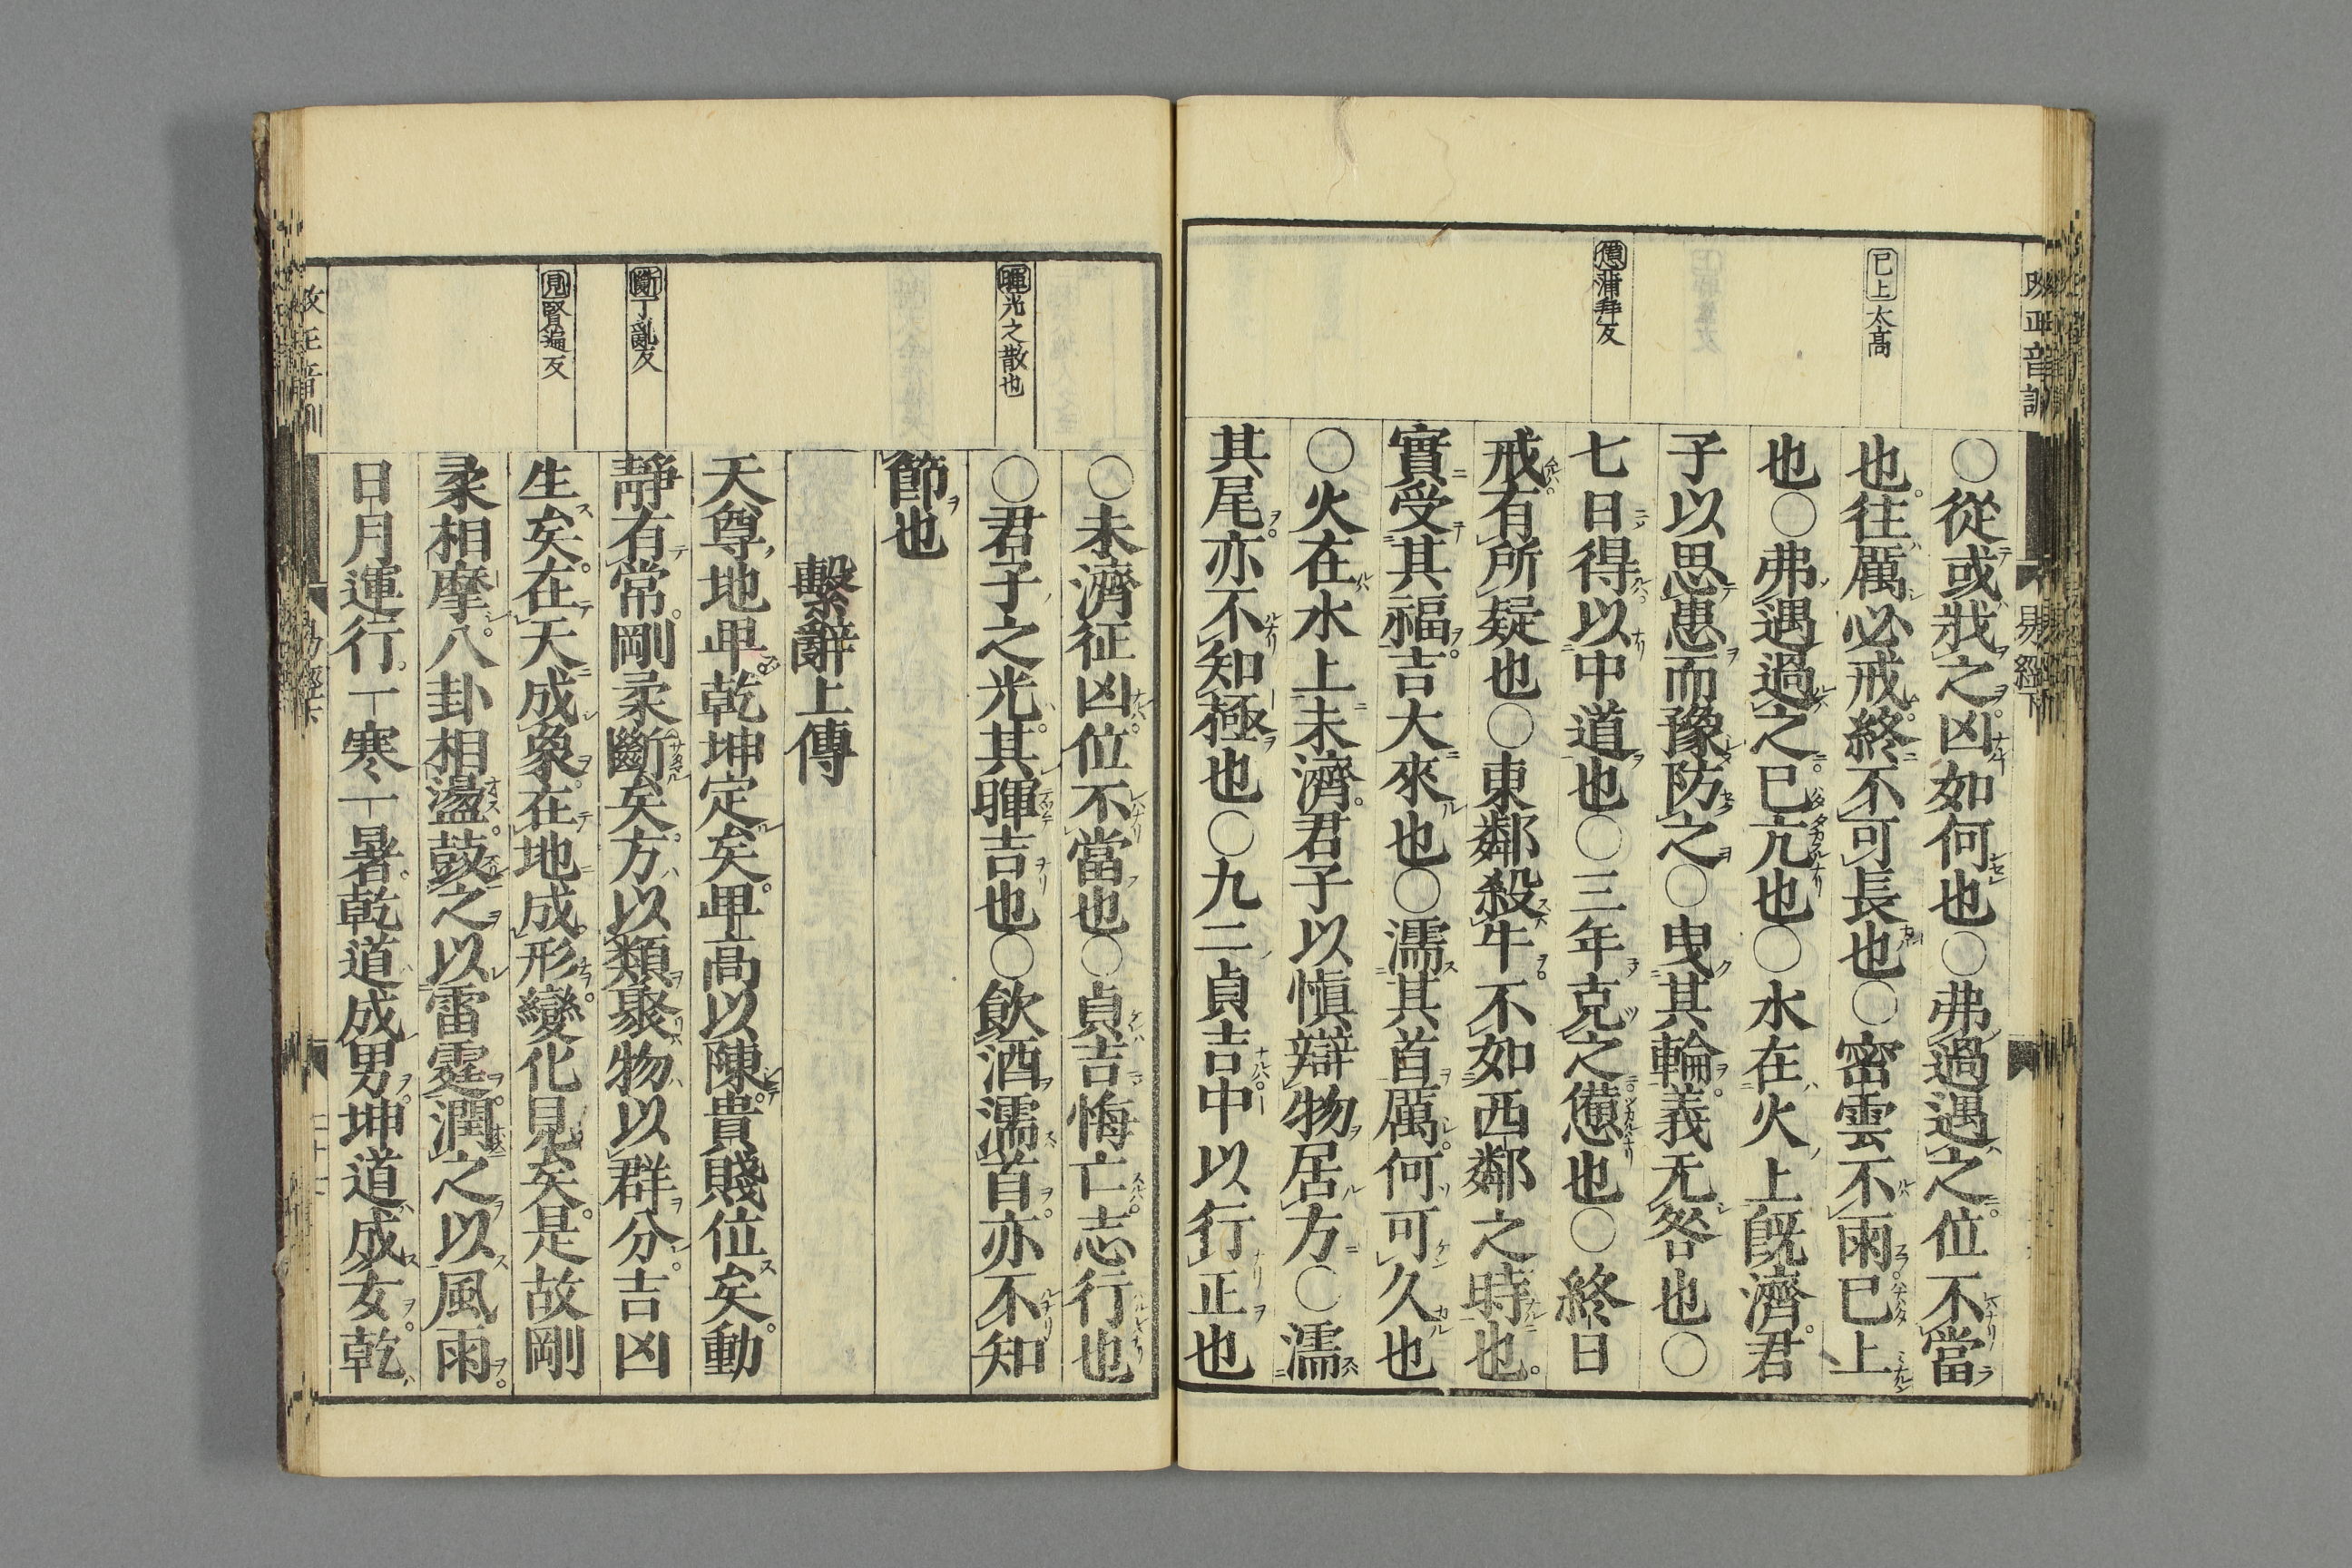 改正音訓
易經下
已上太高
憊蒲拜反
○從或戕之凶如何也○弗過遇之位不當
也往厲必戒終不可長也○密雲不雨已上
也○弗遇過之已亢也○水在火上旣濟君
子以思患而豫防之○曳其輪義无咎也○
七日得以中道也○三年克之憊也○終日
戒有所疑也○東鄰殺牛不如西鄰之時也
實受其福吉大來也○濡其首厲何可久也
○火在水上未濟君子以愼辯物居方○濡
其尾亦不知極也○九二貞吉中以行正也
暉光之散也
斷丁亂反
見賢遍反
○未濟征凶位不當也○貞吉悔亡志行也
○君子之光其暉吉也○飮酒濡首亦不知
節也
繫辭上傳
天尊地卑乾坤定矣卑高以陳貴賤位矣動
靜有常剛柔斷矣方以類聚物以群分吉凶
生矣在天成象在地成形變化見矣是故剛
柔相摩八卦相盪鼓之以雷霆潤之以風雨
日月運行一寒一暑乾道成男坤道成女乾
改正音訓
易經下